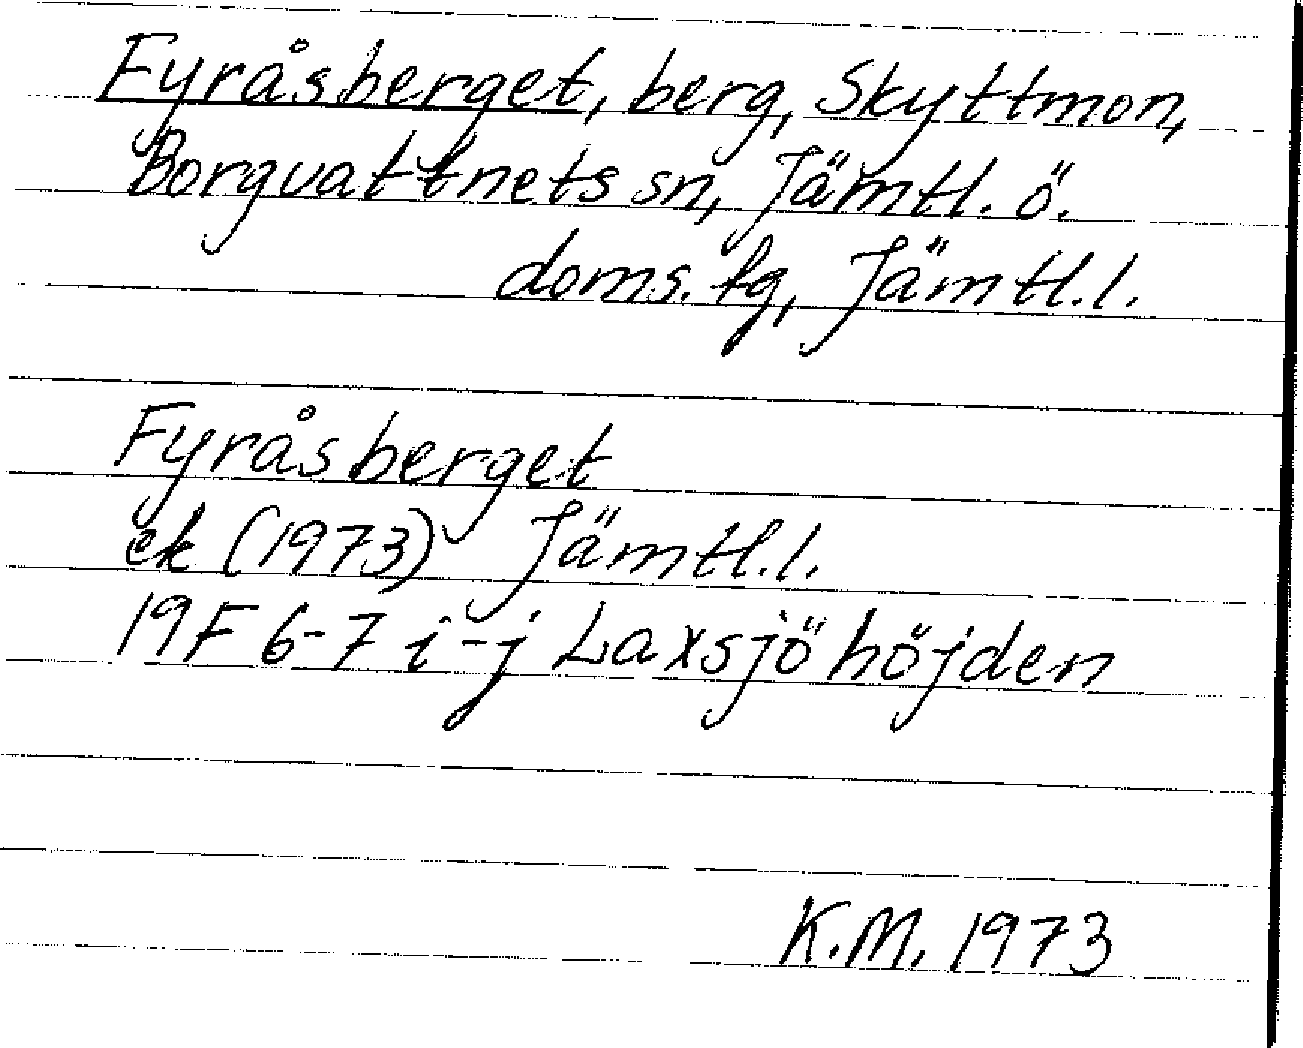 Fyråsberget, berg, Skyttmon,
Borgvattnets sn, Jämtl. ö.
doms. fg, Jämtl. l.
Fyråsberget
ek (1973) Jämtl. l.
19F 6-7 i-j Laxsjöhöjden
K.M. 1973